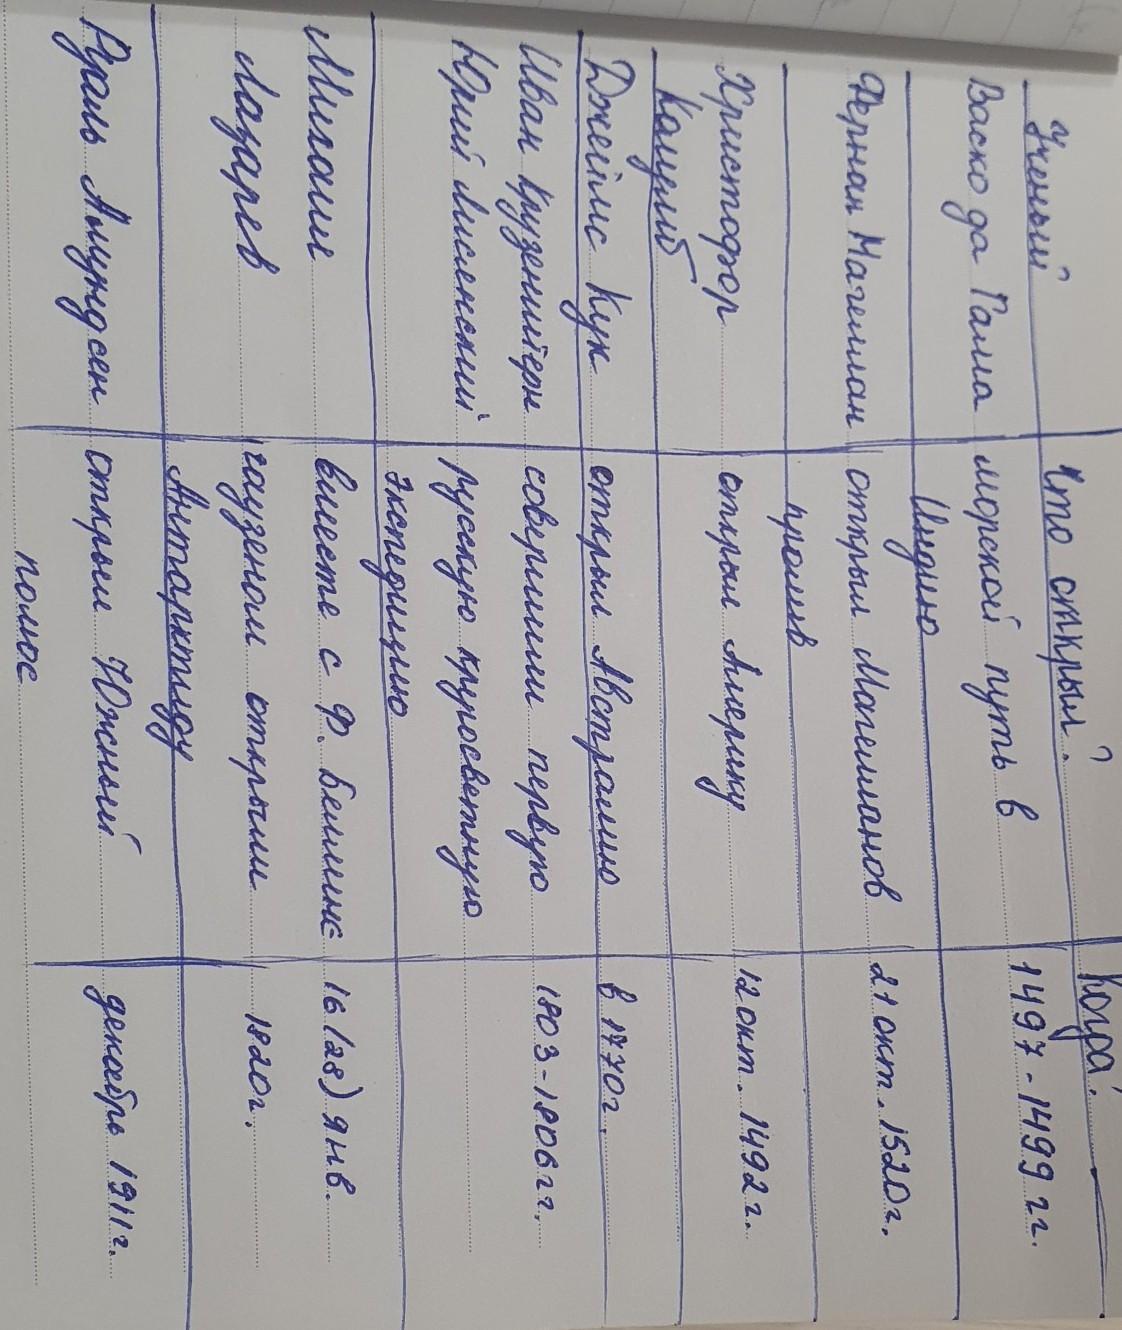 Учёный? Что открыл? Когда?
Васко да Гамма морской путь в 1497-1499 гг.
Индию
Фернан Магеллан открыл Магелланов 21 окт. 1520г.
пролив
Христофор открыл Америку 12 окт. 1492г.
Колумб
Джеймс Кук открыл Австралию в 1770г.
Иван Крузенштерн совершили первую 1803-1806гг.
Юрий Лисянский русскую кругосветную
экспедицию
Михаил вместе с Ф. Беллинс 16(28) янв.
Лазарев гаузеном открыли 1820г.
Антарктиду
Руаль Амундсен открыл Южный декабрь 1911г.
полюс